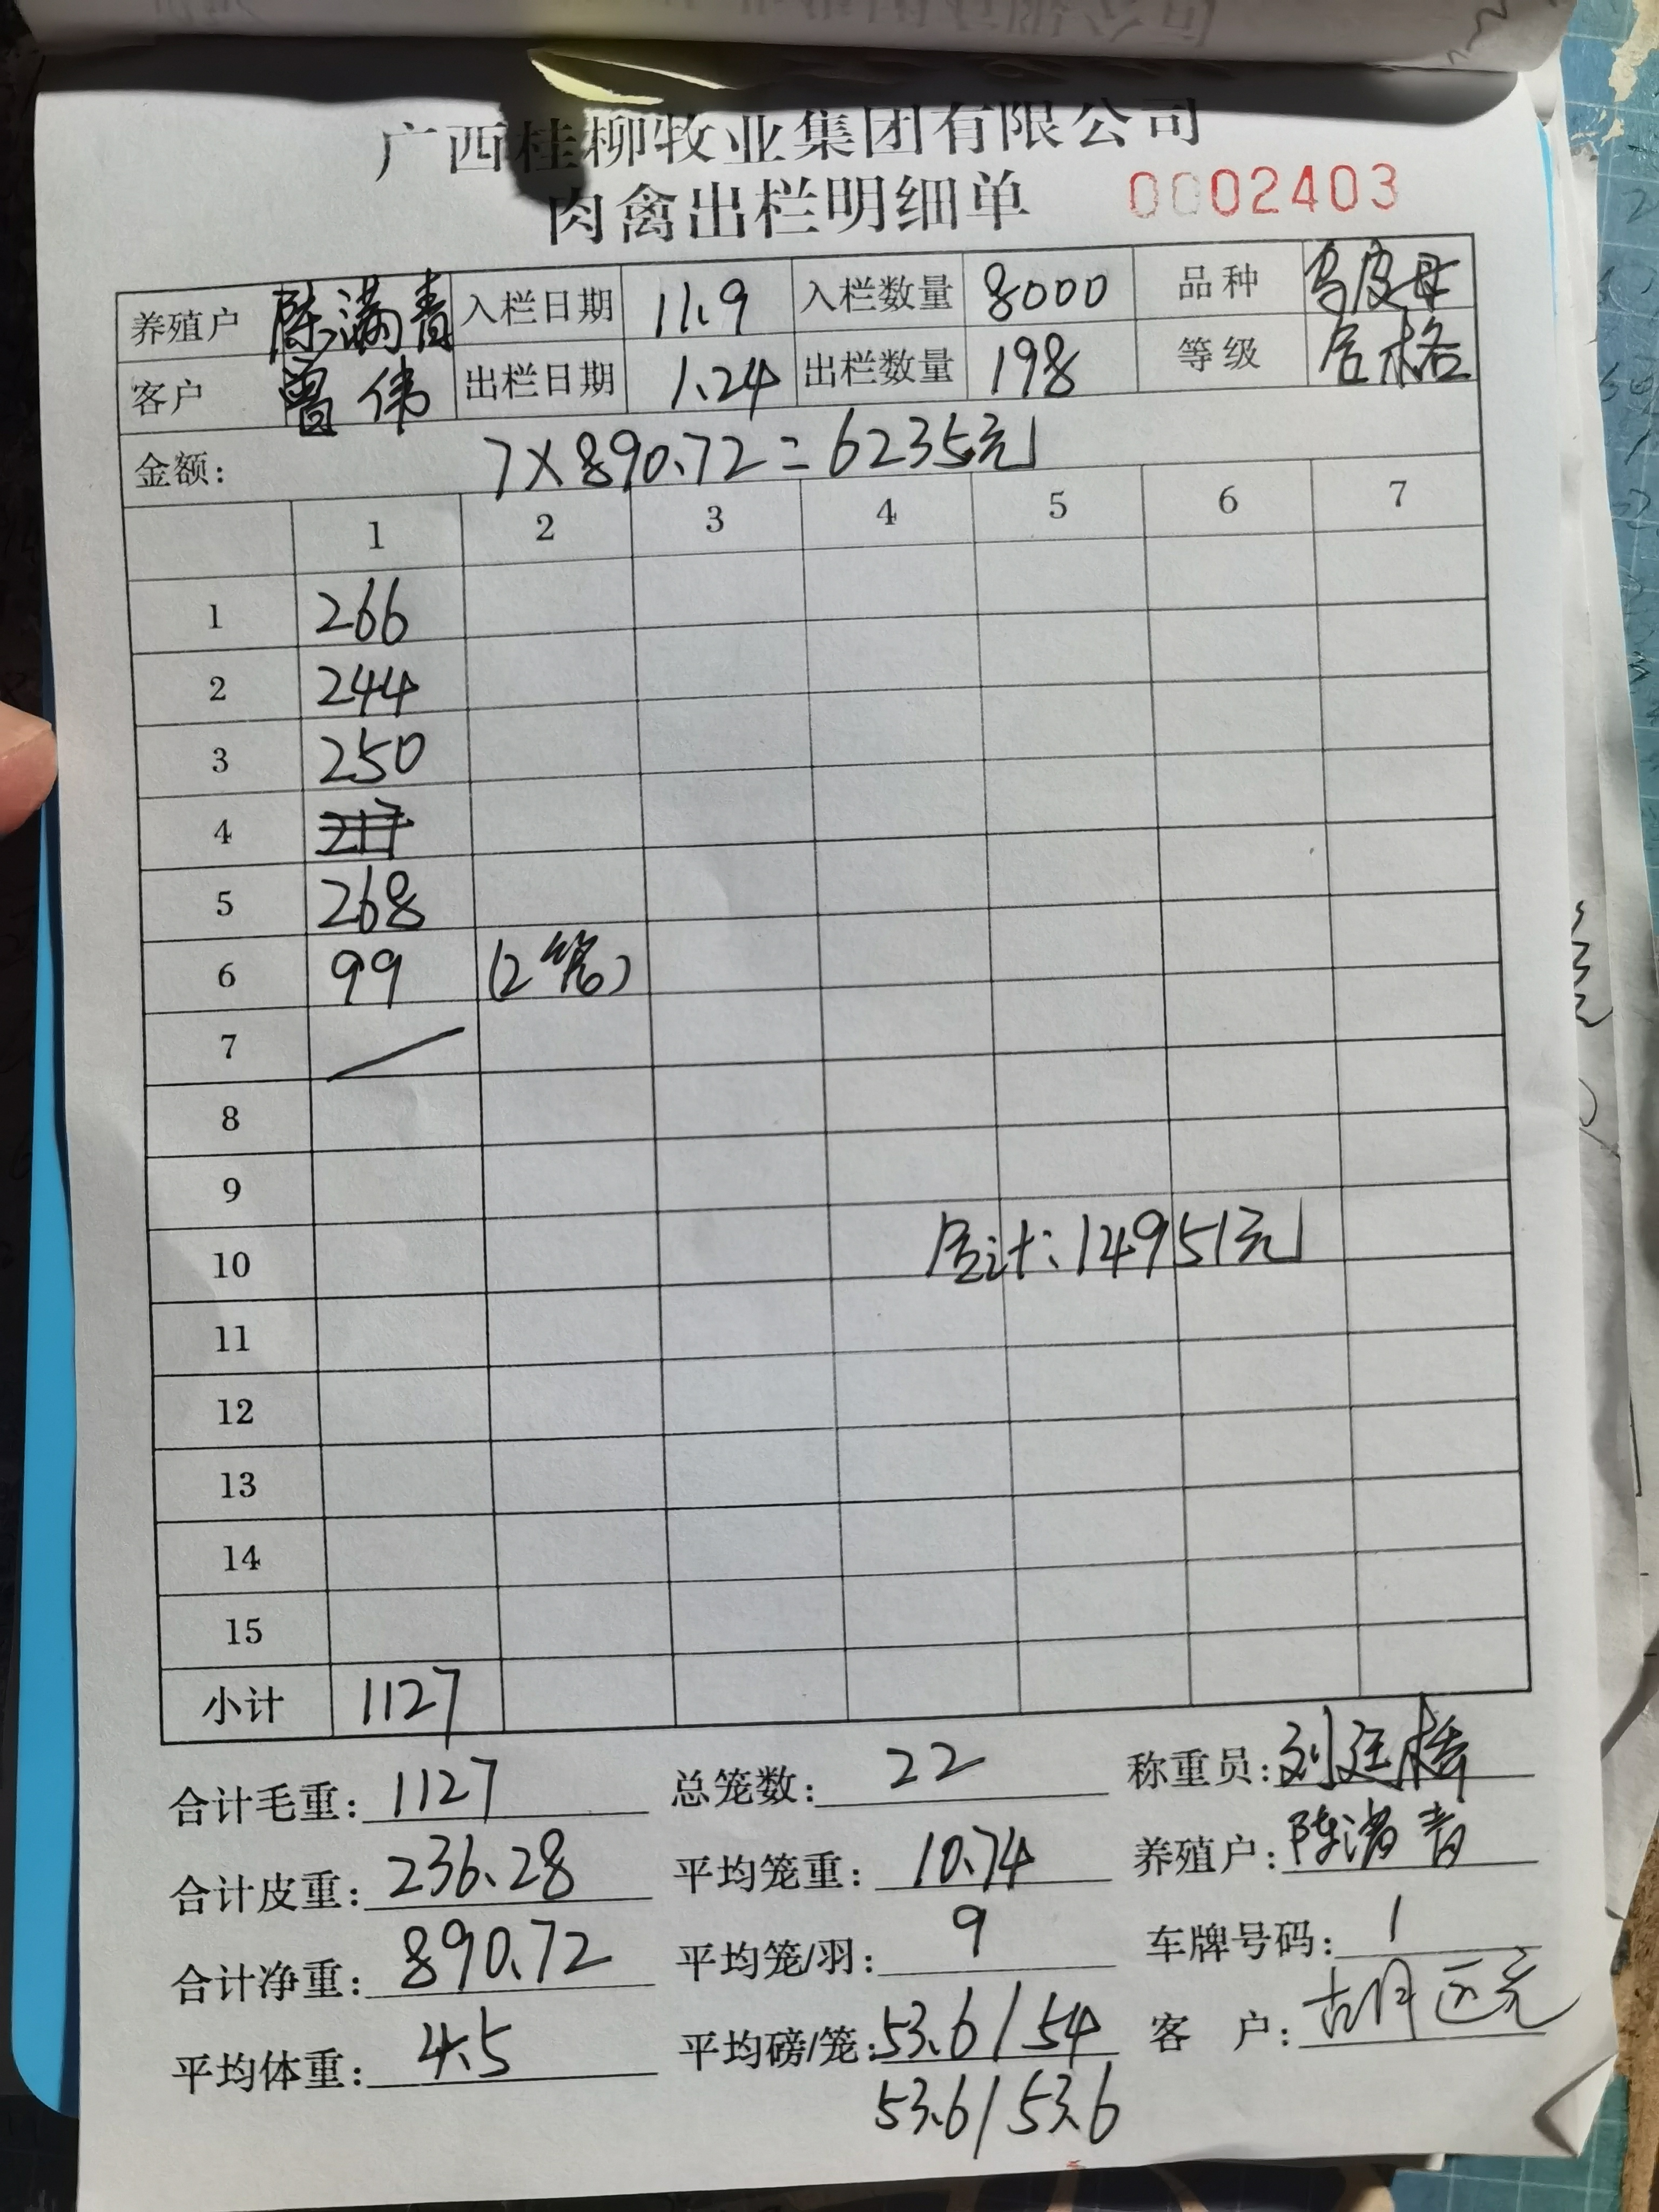 广西桂柳牧业集团有限公司
肉禽出栏明细单 0002403
养殖户 陈满青 入栏日期 11.9 入栏数量 8000 品种 乌皮母
客户 曾伟 出栏日期 1.24 出栏数量 198 等级 合格
金额: 7×890.72=6235元
1 2 3 4 5 6 7
1 266
2 244
3 250
4 217
5 268
6 99 (2笼)
7
8
9
10 合计:14951元
11
12
13
14
15
小计 1127
合计毛重: 1127 总笼数: 22 称重员: 刘廷
合计皮重: 236.28 平均笼重: 10.74 养殖户: 陈满青
合计净重: 890.72 平均笼/羽: 9 车牌号码: 1
平均体重: 4.5 平均磅/笼: 53.6/54 客 户: 胡正元
53.6/53.6